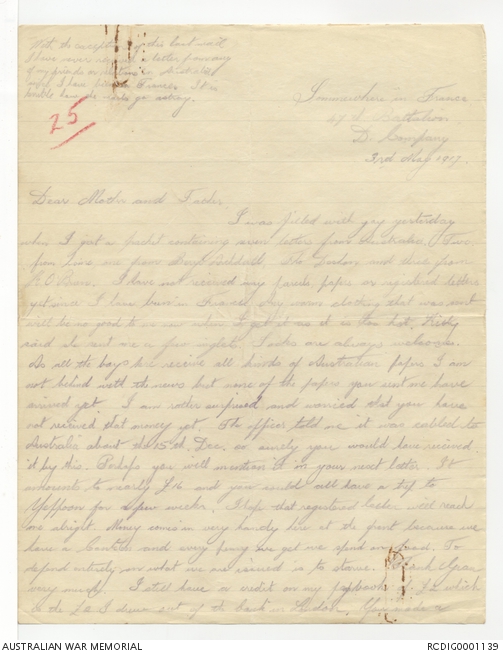 With the exception of this last mail
I have never received a letter from any
of my friends or relations in Australia
since I have been in France. It is
terrible how the mails go astray.
25
Somewhere in France
47th Battalion
D. Company
3rd May 1917.
Dear Mother and Father,
I was filled with joy yesterday
when I got a packet containing seven letters from Australia. Two
from
I have not received my parcels papers or registered letters
yet since I have been in France. Any warm clothing that was sent
will be no good to me now when I get it as it is too hot.
said she sent me a few singlets. Socks are always welcome.
As all the boys here receive all kinds of Australian papers I am
not behind with the news but none of the papers you sent me have
arrived yet. I am rather surprised and worried that you have
not received that money yet. The officer told me it was cabled to
Australia about the 15th Dec. so surely you would have received
it by this. Perhaps you will mention it in your next letter. It
amounts to nearly £16 and you could all have a trip to
Yeppoon for a few weeks. I hope that registered letter will reach
me alright. Money comes in very handy here at the front because we
have a Canteen and every penny we get we spend on food. To
depend entirely on what we are issued is to starve. Thank Gran
very much. I still have a credit on my passbook of £2 which
is the £2 I drew out of the bank in London. You made a
AUSTRALIAN WAR MEMORIAL
RCDIG0001139